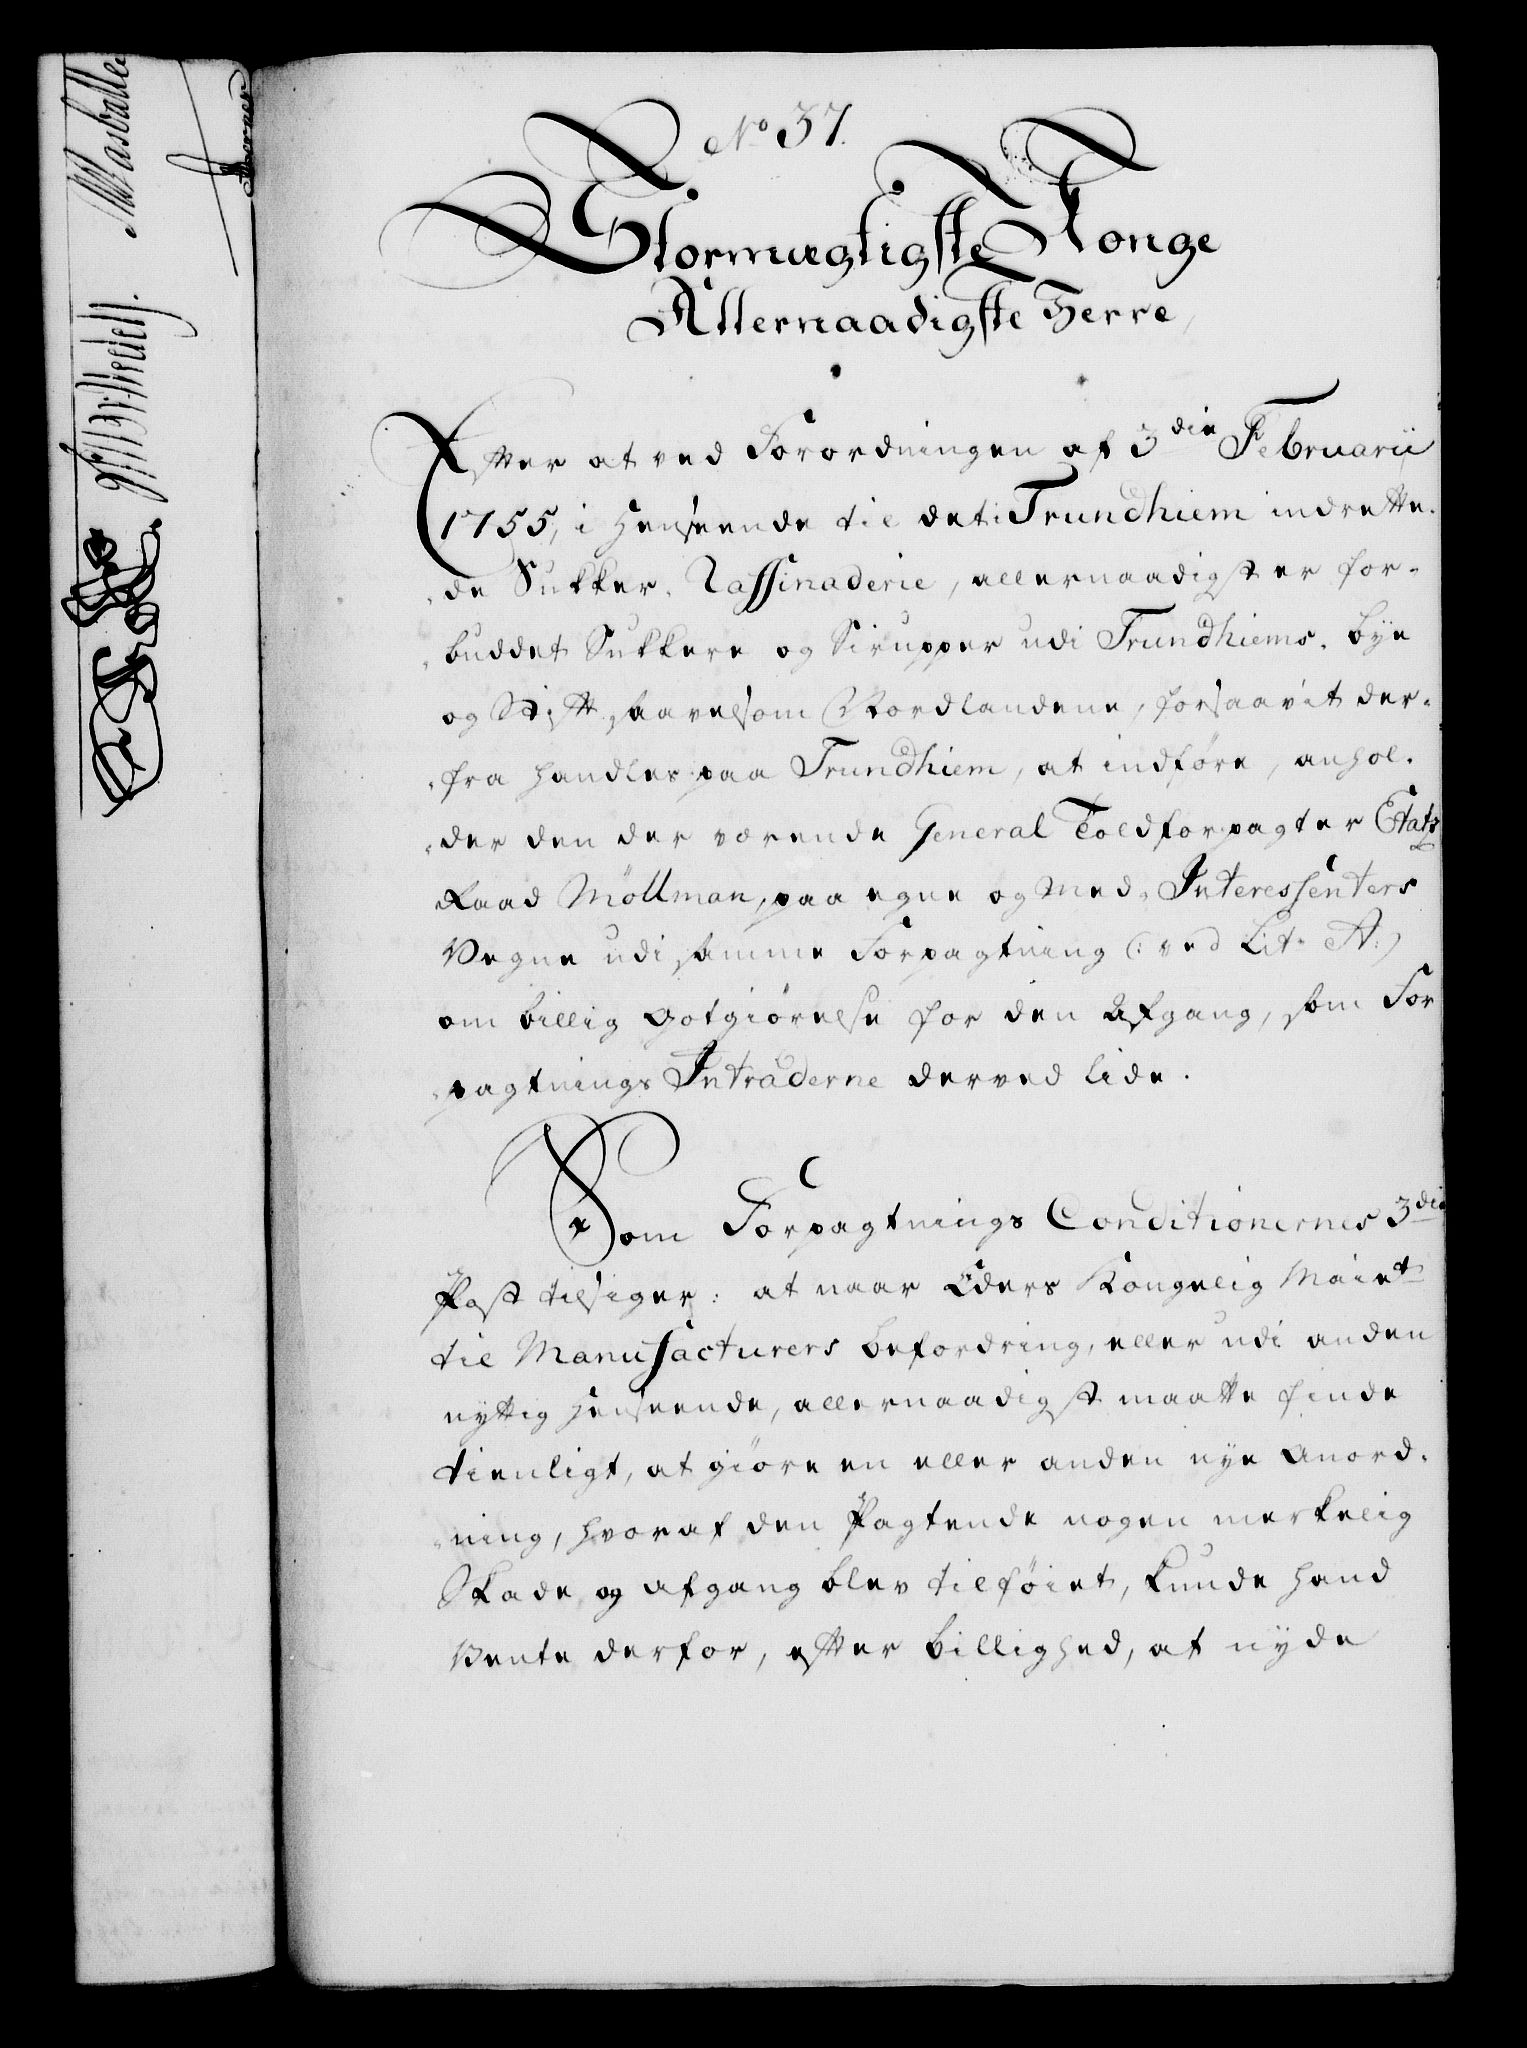 No 37.
Stormægtigste Konge
Allernaadigste Herre,
Efter at ved Forordningen af 3die Februarii
1755, i Henseende til det i Trundhiem indrette-
de Sukker-Raffinaderie, allernaadigst er for-
buddet Sukkere og Sirupper udi Trundhiems-bye
og Stift saavelsom Nordlandene, forsaavit der-
fra handles paa Trundhiem, at indføre, anhol-
der den der værende General Toldforpagter Etats
Raad Möllman, paa egne og Med-Interessenters
Vegne udi samme Forpagtning (: ved Lit. A:)
om billig Gotgiörelse for den Afgang, som For
pagtnings Intraderne derved lide.
Som Forpagtnings Conditionernes 3die
Post tilsiger: at naar Eders Kongelig Maiet
til Manufacturers befordring, eller udi anden
nyttig Henseende, allernaadigst maatte finde
tienligt, at giöre en eller anden nye Anord-
ning, hvoraf den Pagtende nogen merkelig
Skade og afgang blev tilföiet, kunde hand
Vente derfor, efter billighed, at nyde